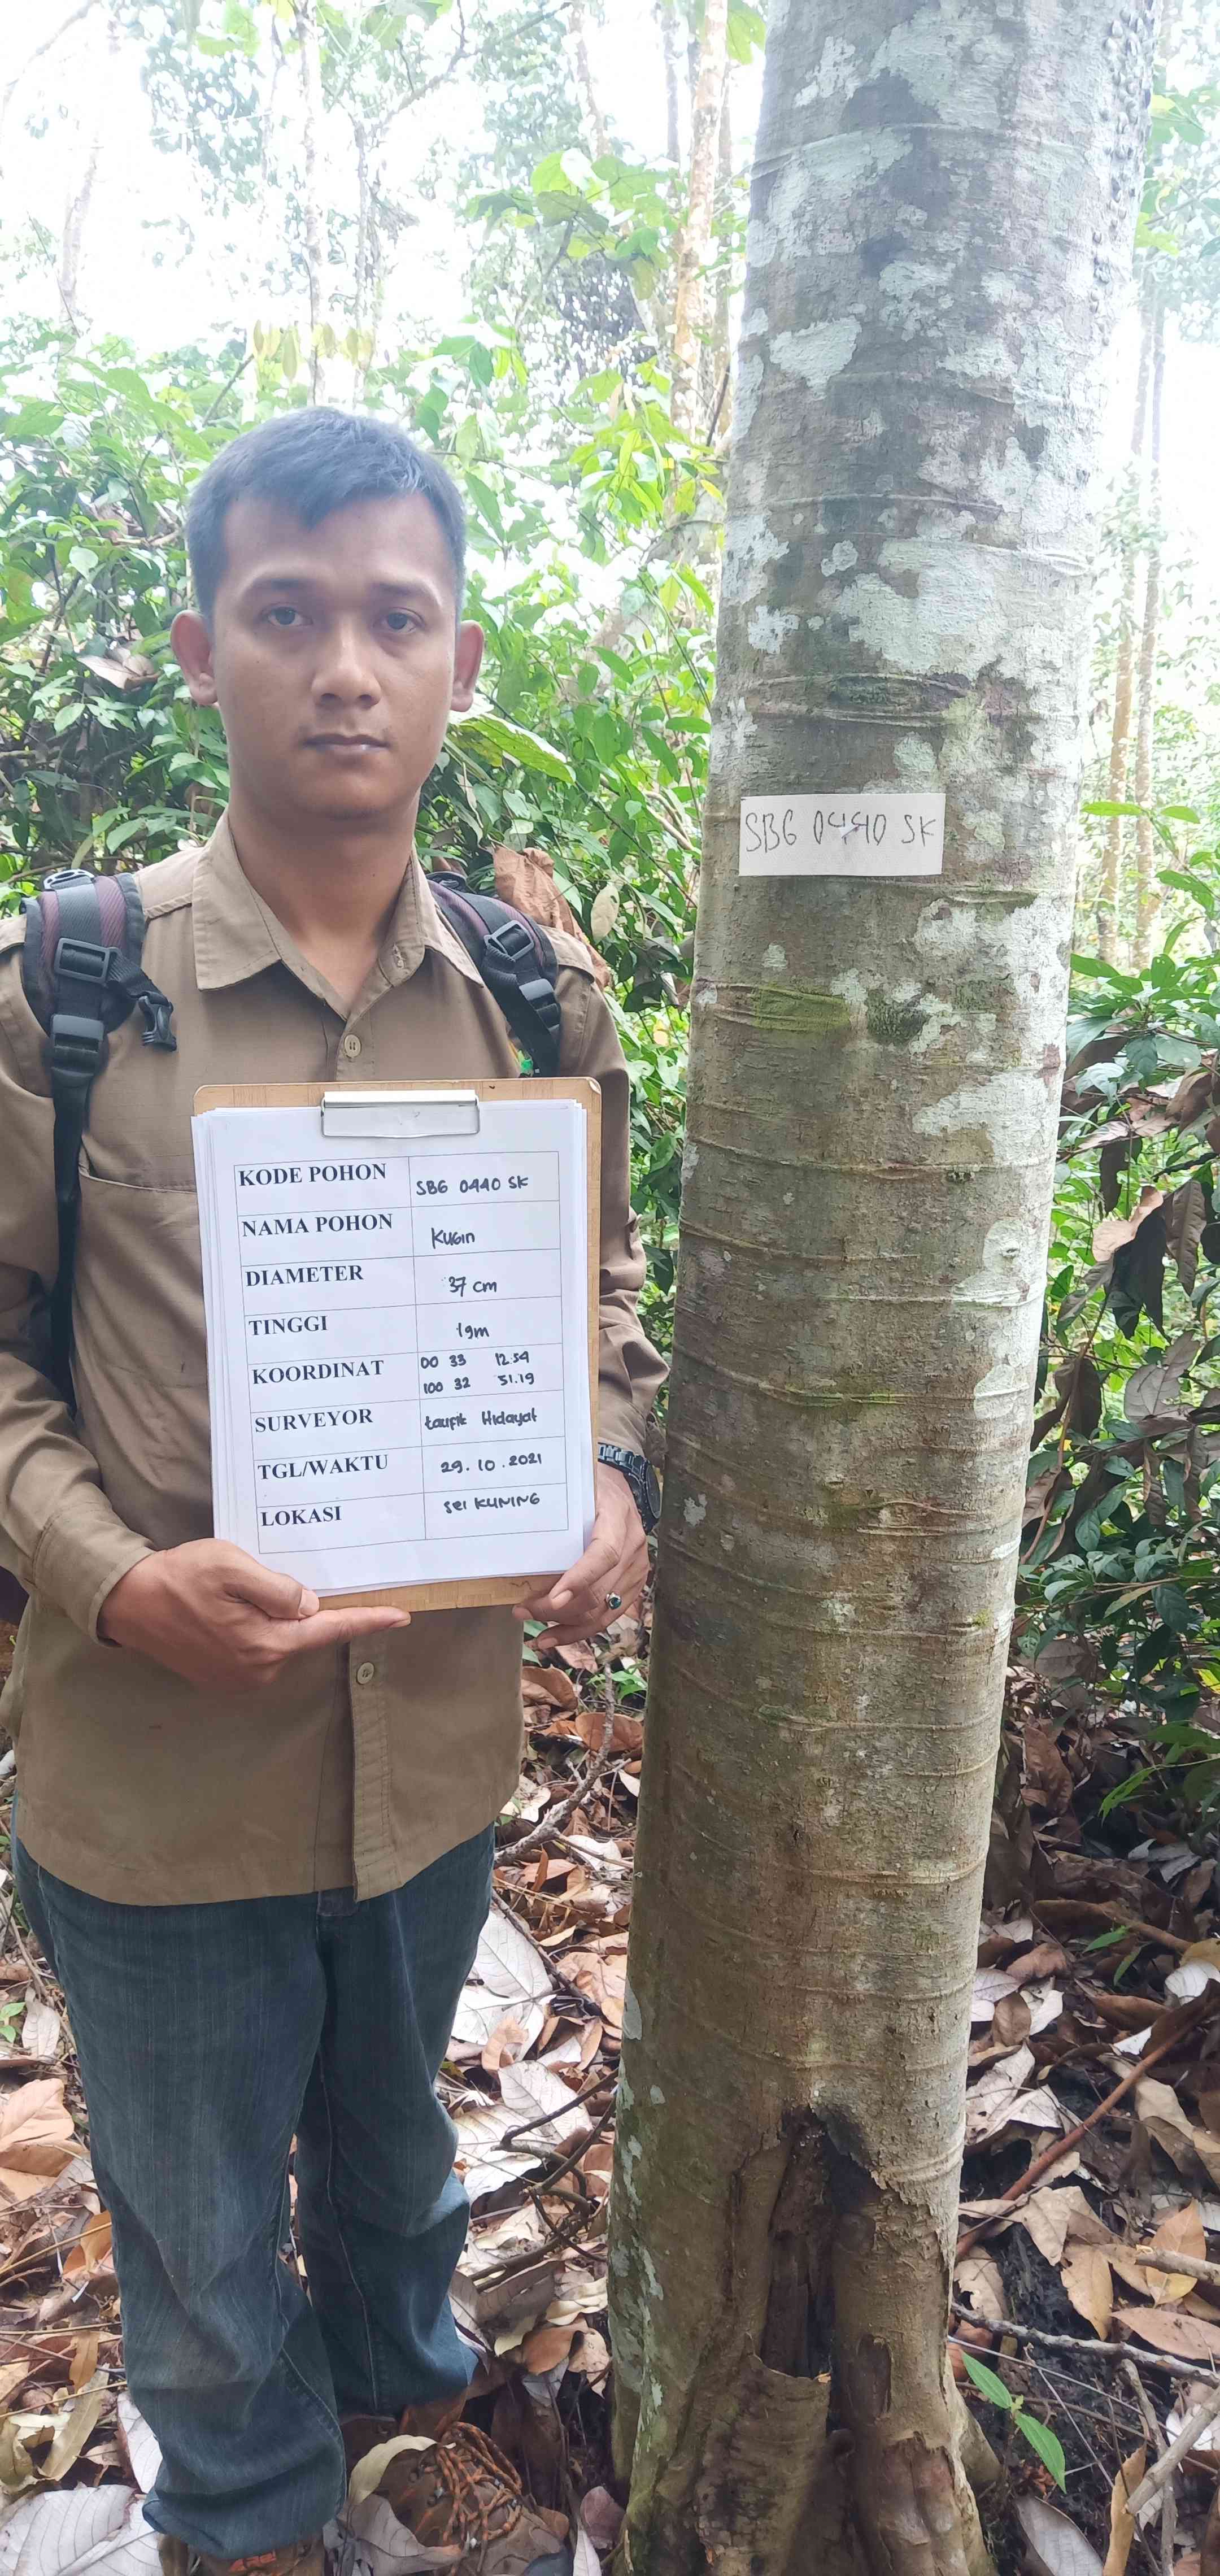 SBG 0440 SK
KODE POHON SBG 0440 SK
NAMA POHON KUBIN
DIAMETER 37 cm
TINGGI 19m
KOORDINAT 00 33 12.54
100 32 51.19
SURVEYOR taufik Hidayat
TGL/WAKTU 29.10.2021
LOKASI sei KUNING